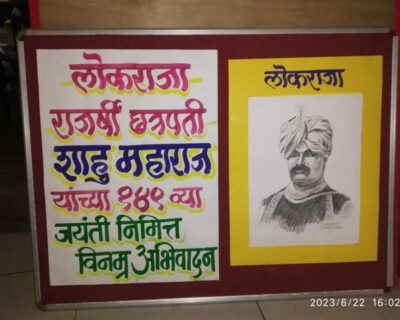 लोकराजा
राजर्षी छत्रपती
शाहु महाराज
यांच्या १४९ व्या
जयंती निमित्त
विनम्र अभिवादन
लोकराजा
2023/6/22 16:02